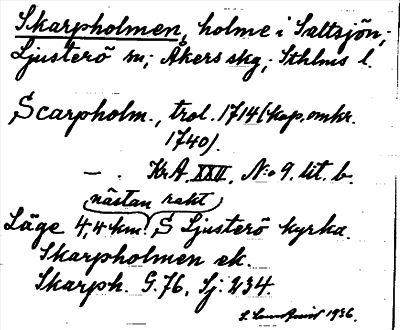 Skarpholmen, holme i Saltsjön,;
Ljusterö sn; Åkers skg; Sthlms l.
Scarpholm., trol. 1714 (kop. omkr.
1740).
— . KrA. XXII. N:o 9. lit. b.
nästan rakt
Läge 4,4 km. S Ljusterö kyrka.
Skarpholmen ek.
Skarph. G. 76, Sj. 234.
1936.